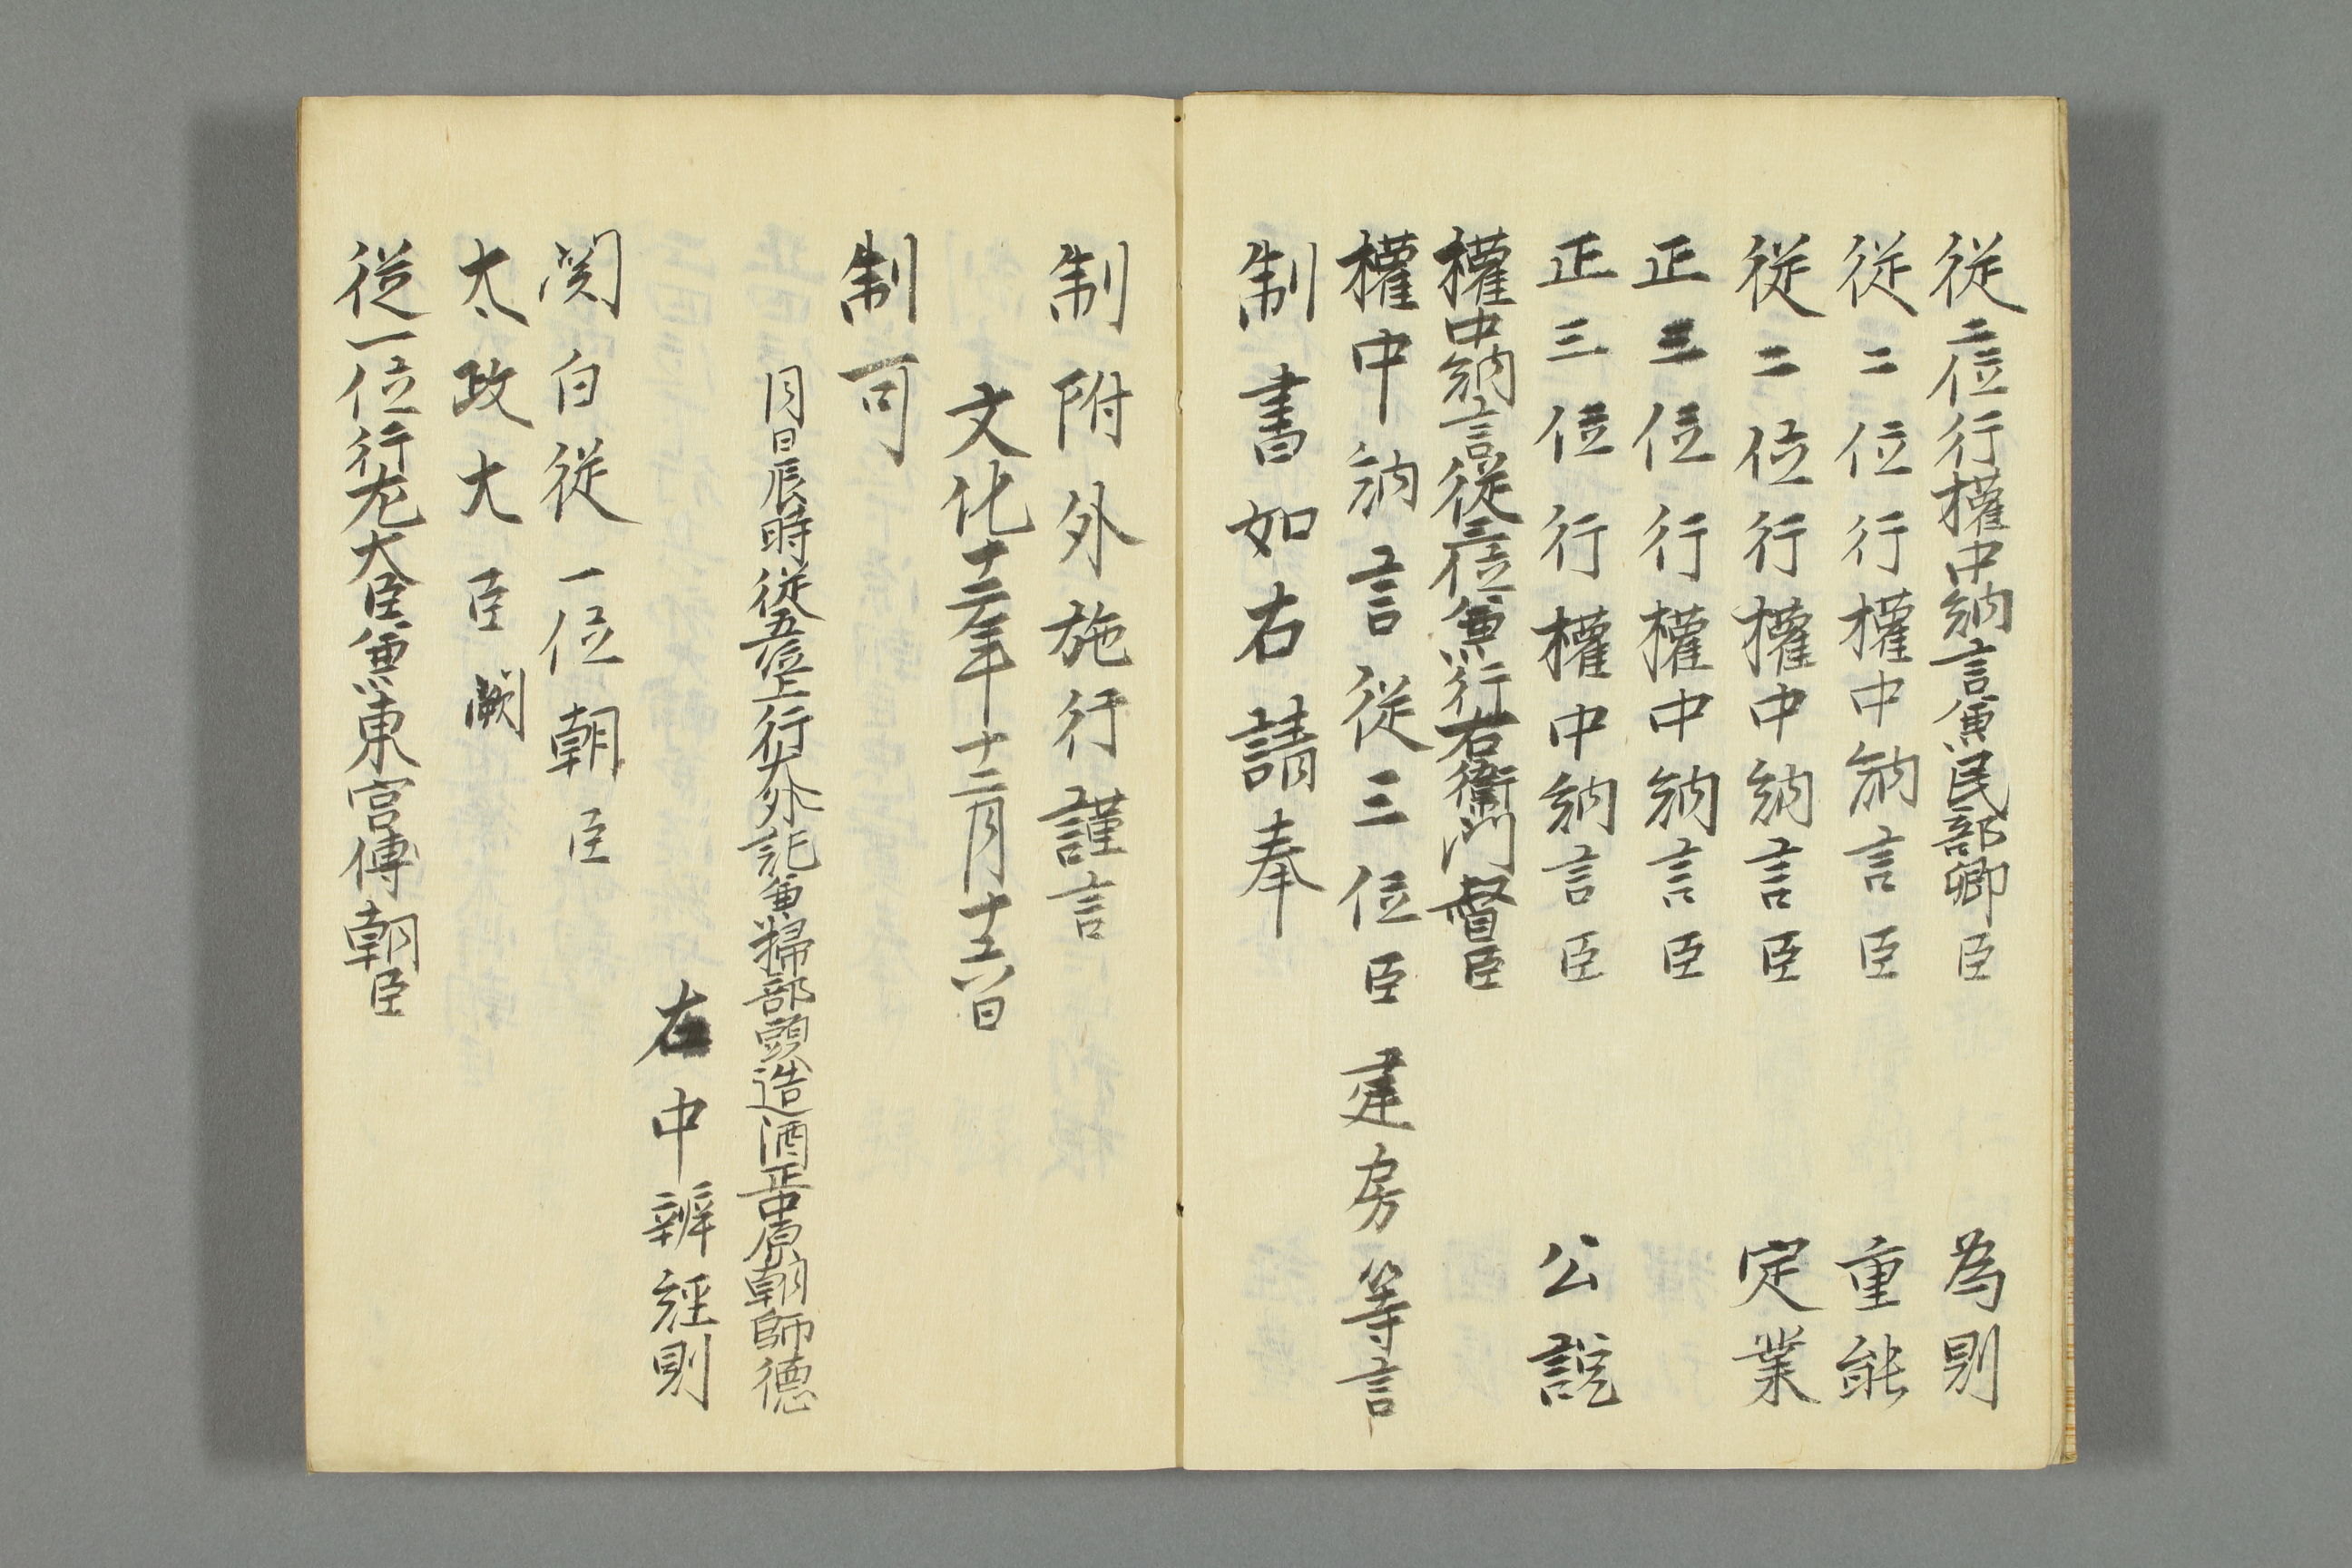 従二位行權中納言兼民部卿臣 為則
従二位行權中納言臣 重能
従二位行權中納言臣 定業
正三位行權中納言臣
正三位行權中納言臣 公説
權中納言従三位兼行右衛門督臣
權中納言従三位臣 建房等言
制書如右請奉
制附外施行謹言
文化十二年十二月十六日
制可
月日辰時従五位上行大外記兼掃部頭造酒正中原朝臣師徳
右中辨経則
関白従一位朝臣
太政大臣闕
従一位行左大臣兼東宮傅朝臣